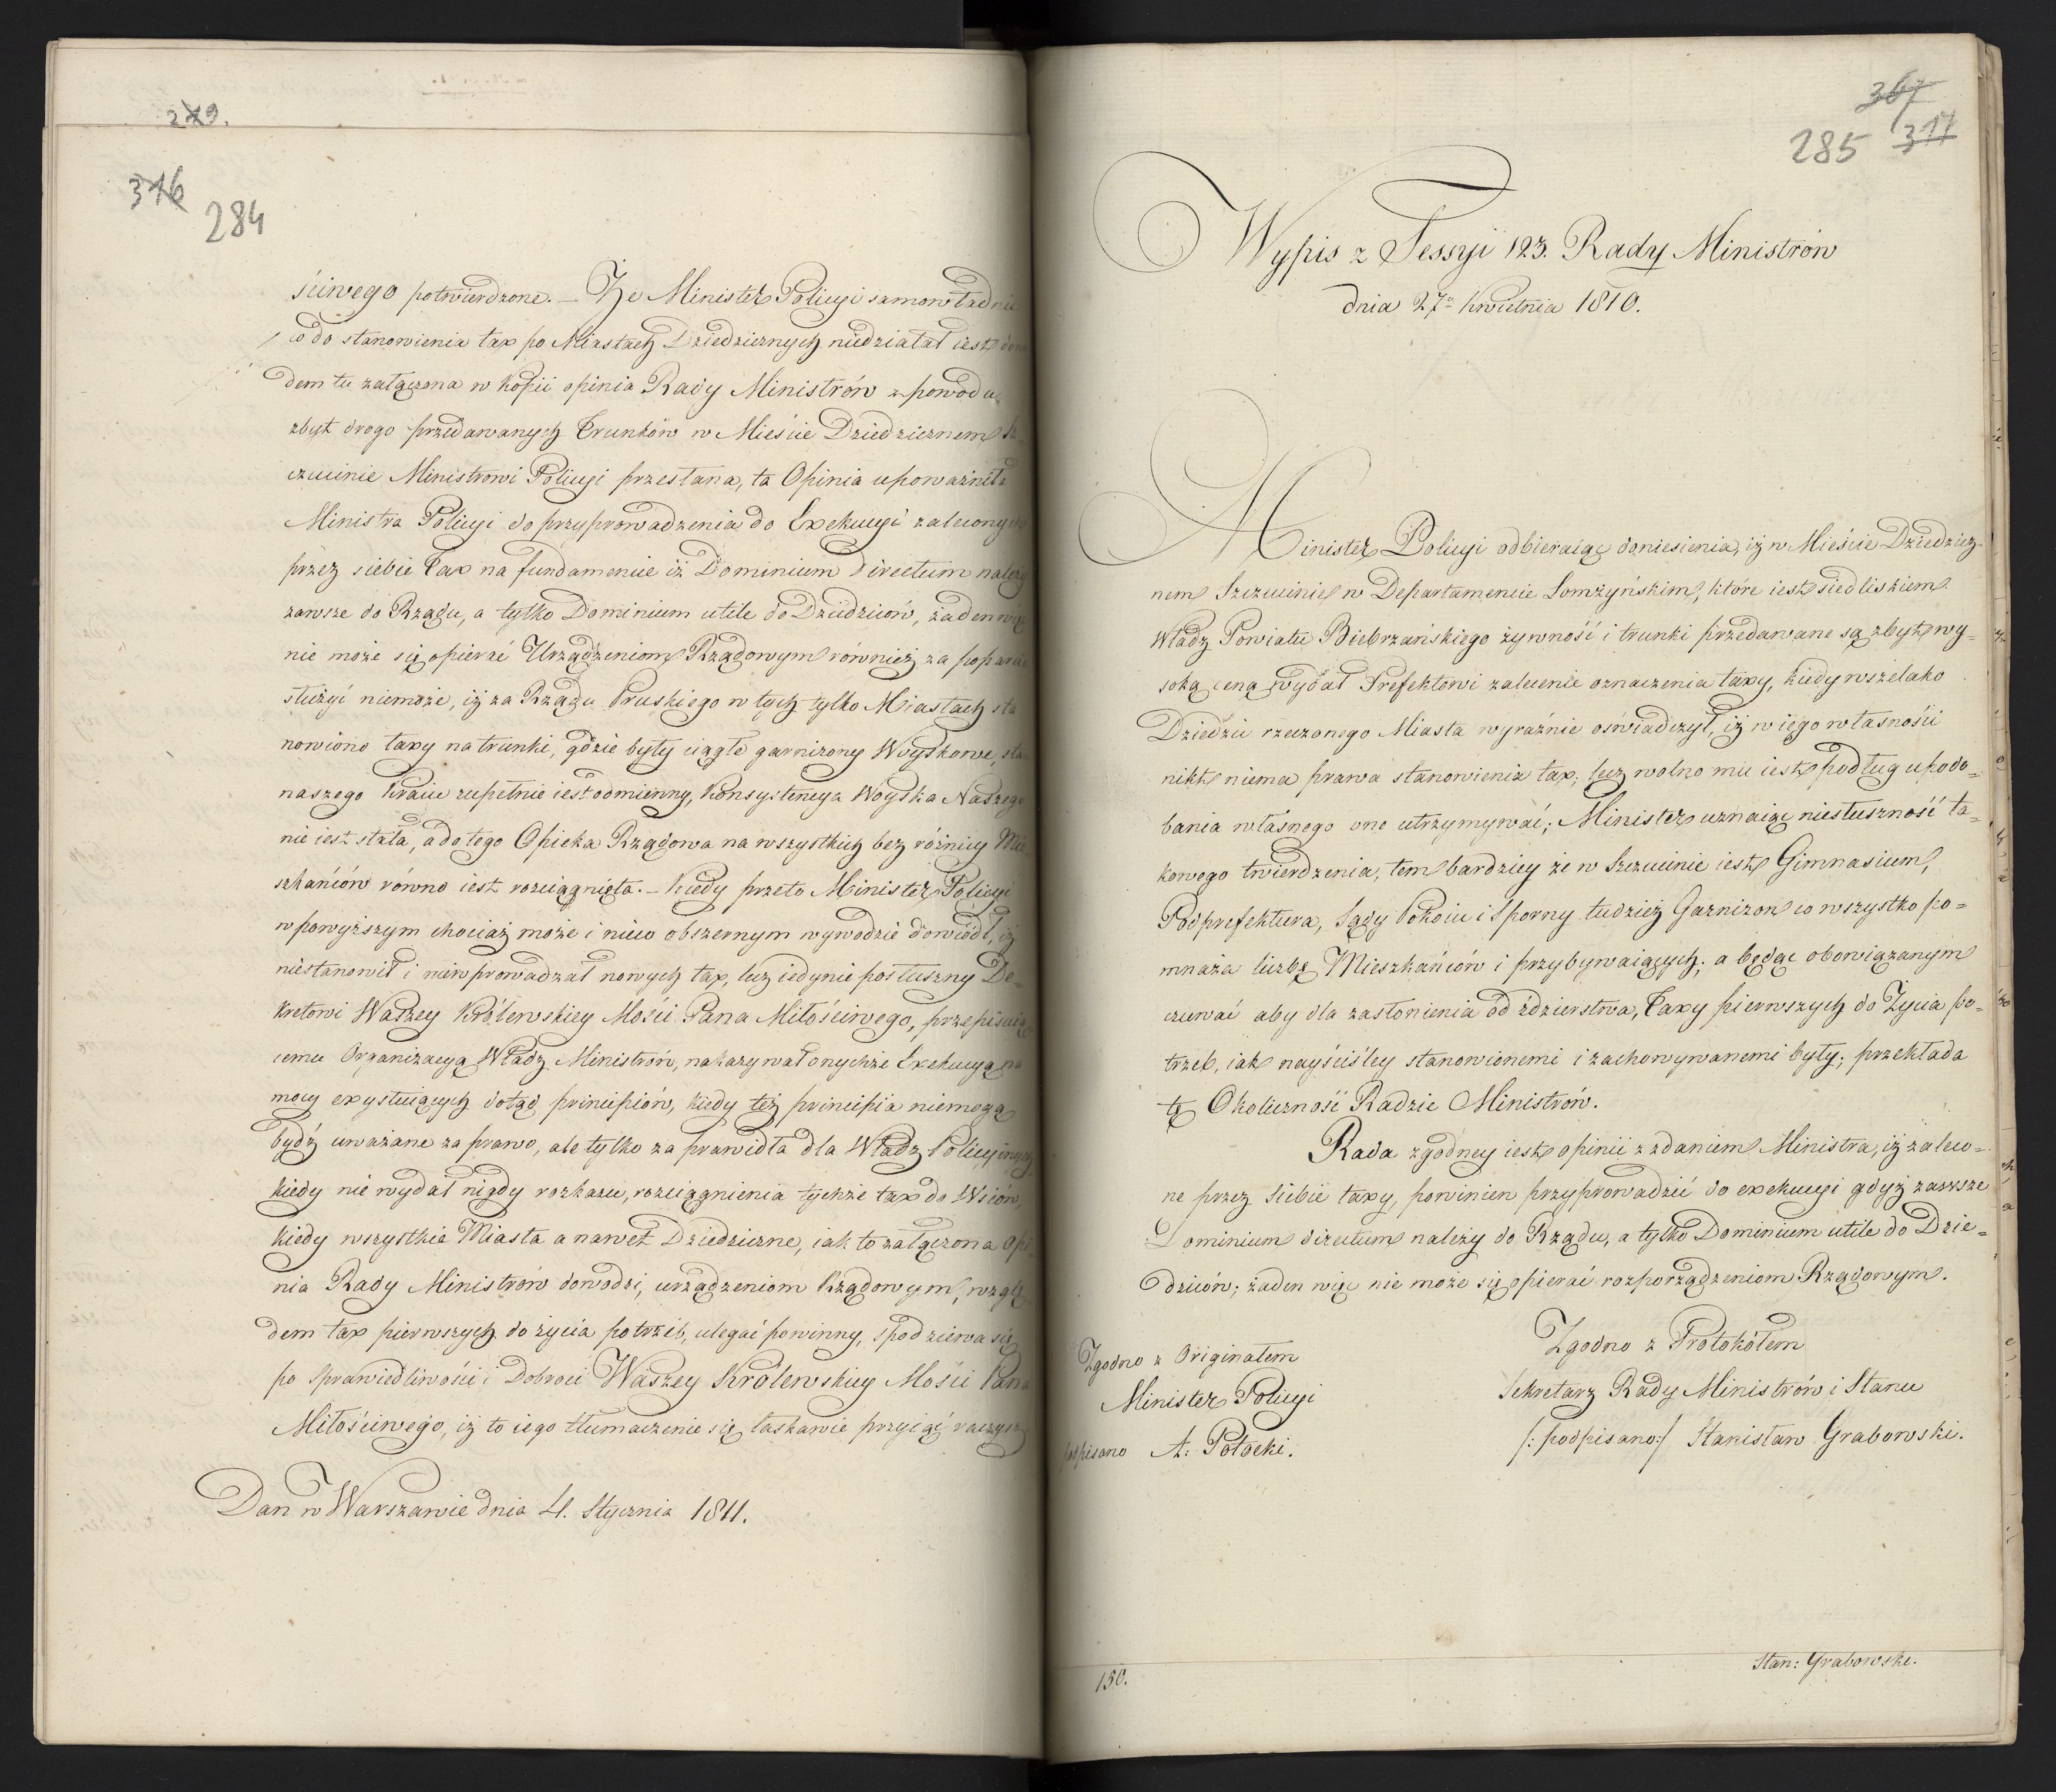 249.
316
284
ściwego potwierdzone. – Że Minister Policyi samowładnie
co do stanowienia tax po Miastach Dziedzicznych niedziałał iest
dem tu załączona w kopii opinia Rady Ministrów z powodu
zbyt drogo przedawanych Trunków w Mieście Dziedzicznem
czucinie Ministrowi Policyi przesłana, ta Opinia upoważniła
Ministra Policyi do przyprowadzenia do Exekucyi zaleconych
przez siebie Tax na fundamencie iż Dominium directum należy
zawsze do Rządu, a tylko Dominium utile do Dziedziców, żaden więc
nie może się opierać Urządzeniom Rządowym również za poparcie
służyć niemoże, iż za Rządu Pruskiego w tych tylko Miastach sta
nowiono taxy na trunki, gdzie były ciągłe garnizony Woyskowe, stan
naszego Kraiu zupełnie iest odmienny, Konsystencya Woyska Naszego
nie iest stała, a do tego Opieka Rządowa na wszystkich bez różnicy Mie
szkańców równo iest rozciągnięta. – Kiedy przeto Minister Policyi
w powyższym chociaż może i nieco obszernym wywodzie dowiódł, iż
niestanowił i niewprowadzał nowych tax, lecz iedynie posłuszny De-
kretowi Waszey Królewskiey Mości Pana Miłościwego, przepisuią
cemu Organizacyą Władz Ministrów, nakazywał onychże Exekucyą na
mocy exystuiących dotąd principiów, kiedy też principia niemogą
bydź uważane za prawo, ale tylko za prawidła dla Władz Policyinych,
kiedy nie wydał nigdy rozkazu, rozciągnienia tychże tax do Wsiów,
kiedy wszystkie Miasta a nawet Dziedziczne, iak to załączona Opi
nia Rady Ministrów dowodzi, urządzeniom Rządowym, wzglę
dem tax pierwszych do życia potrzeb, ulegać powinny, spodziewa się
po Sprawiedliwości i Dobroci Waszey Królewskiey Mości Pana
Miłościwego, iż to iego tłumaczenie się łaskawie przyiąć raczysz
Dan w Warszawie dnia 4. Stycznia 1811.
367
285 317
Wypis z Sessyi 123. Rady Ministrów
dnia 27º Kwietnia 1810.
Minister Policyi odbieraiąc doniesienia, iż w Mieście Dziedzicz-
nem Szczucinie w Departamencie Łomżyńskim, które iest siedliskiem
Władz Powiatu Biebrzańskiego żywność i trunki przedawane są zbyt wy-
soką ceną wydał Prefektowi zalecenie oznaczenia taxy, kiedy wszelako
Dziedzic rzeczonego Miasta wyraźnie oświadczył, iż w iego własności
nikt niema prawa stanowienia tax; lecz wolno mu iest podług upodo-
bania własnego one utrzymywać; Minister uznaiąc niesłuszność ta-
kowego twierdzenia, tem bardziey że w Szczucinie iest Gimnasium,
Podprefektura, Sądy Pokoiu i Sporny tudzież Garnizon co wszystko po-
mnaża liczbę Mieszkańców i przybywaiących; a będąc obowiązanym
czuwać aby dla zasłonienia od zdzierstwa, Taxy pierwszych do Życia po-
trzeb, iak nayściśley stanowionemi i zachowywanemi były; przekłada
tę Okoliczność Radzie Ministrów.
Rada zgodney iest opinii z zdaniem Ministra, iż zaleco-
ne przez siebie taxy, powinien przyprowadzić do exekucyi gdyż zawsze
Dominium directum należy do Rządu, a tylko Dominium utile do Dzie-
dziców; żaden więc nie może się opierać rozporządzeniom Rządowym.
Zgodno z Protokółem
Sekretarz Rady Ministrów i Stanu
/: podpisano:/ Stanisław Grabowski.
Zgodno z Originałem
Minister Policyi
podpisano A: Potocki.
150.
Stan: Grabowski.